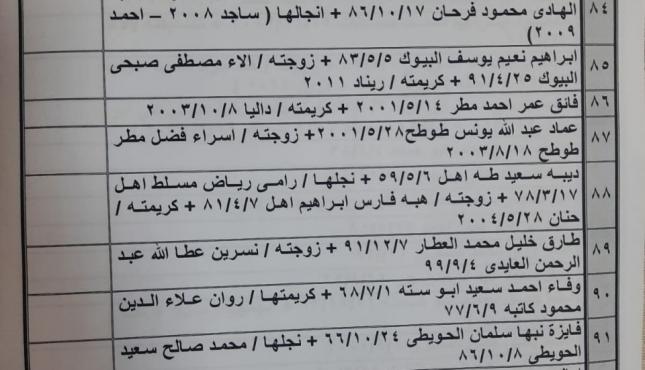 ٨٤ الهادى محمود فرحان ٨٦/١٠/١٧ + انجالها ( ساجد ٢٠٠٨ – احمد
٢٠٠٩)
٨٥ ابراهيم نعيم يوسف البيوك ٨٣/٥/٥ + زوجته / الاء مصطفى صبحى
البيوك ٩١/٤/٢٥ + كريمته / ريناد ٢٠١١
٨٦ فائق عمر احمد مطر ٢٠٠١/٥/١٤ + كريمته / داليا ٢٠٠٣/١٠/٨
٨٧ عماد عبد الله يونس طوطح٢٠٠١/٥/٢٨+ زوجته / اسراء فضل مطر
طوطح ٢٠٠٣/٨/١٨
٨٨ ديبه سعيد طه اهل ٥٩/٥/٦ + نجلها / رامى رياض مسلط اهل
٧٨/٣/١٧ + زوجته / هبه فارس ابراهيم اهل ٨١/٤/٧ + كريمته /
حنان ٢٠٠٤/٥/٢٨
٨٩ طارق خليل محمد العطار ٩١/١٢/٧ + زوجته / نسرين عطا الله عبد
الرحمن العايدى ٩٩/٩/٤
٩٠ وفاء احمد سعيد ابو سته ٦٨/٧/١ + كريمتها / روان علاء الدين
محمود كاتبه ٧٧/٦/٩
٩١ فايزة نبها سلمان الحويطى ٦٦/١٠/٢٤ + نجلها / محمد صالح سعيد
الحويطى ٨٦/١٠/٨